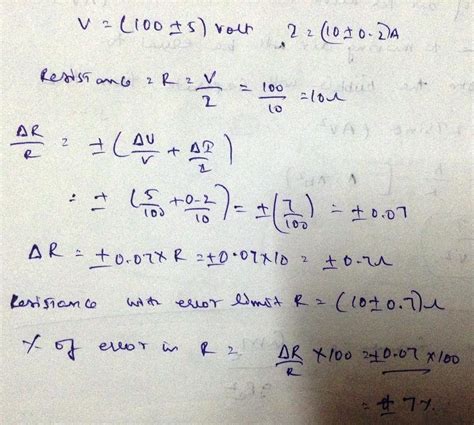 V = (100 ± 5) volt I = (10 ± 0.2)A
Resistance = R = V/I = 100/10 = 10Ω
ΔR/R = ± (ΔV/V + ΔI/I)
= ± (5/100 + 0.2/10) = ± (7/100) = ± 0.07
ΔR = ± 0.07 × R = ± 0.07 × 10 = ± 0.7Ω
Resistance with error limit R = (10 ± 0.7)Ω
% of error in R = ΔR/R × 100 = ± 0.07 × 100
= ± 7%